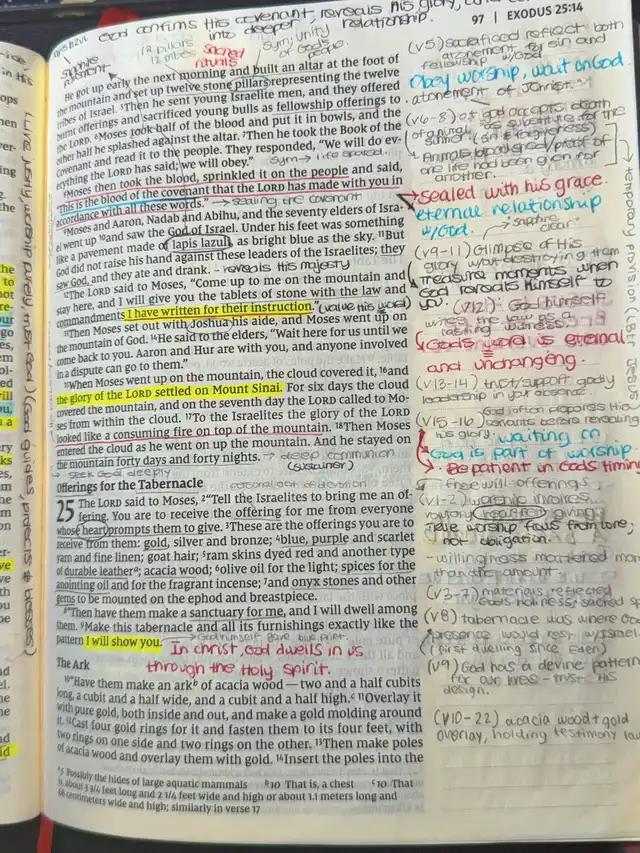 God confirms His covenant, reveals His glory, and
into deeper relationship.
97 | EXODUS 25:14
12 pillars
12 tribes
Sacred
rituals
sym/unity
of God's
people.
He got up early the next morning and built an altar at the foot of
the mountain and set up twelve stone pillars representing the twelve
tribes of Israel. 5Then he sent young Israelite men, and they offered
burnt offerings and sacrificed young bulls as fellowship offerings to
the LORD. 6Moses took half of the blood and put it in bowls, and the
other half he splashed against the altar. 7Then he took the Book of the
Covenant and read it to the people. They responded, "We will do ev-
erything the LORD has said; we will obey."
sym → life
8Moses then took the blood, sprinkled it on the people and said,
"This is the blood of the covenant that the LORD has made with you in
accordance with all these words."
→ sealing the covenant
9Moses and Aaron, Nadab and Abihu, and the seventy elders of Isra-
el went up 10and saw the God of Israel. Under his feet was something
like a pavement made of lapis lazuli, as bright blue as the sky. 11But
God did not raise his hand against these leaders of the Israelites; they
saw God, and they ate and drank.
- reveals His majesty
12The LORD said to Moses, "Come up to me on the mountain and
stay here, and I will give you the tablets of stone with the law and
commandments I have written for their instruction."
(value His word)
13Then Moses set out with Joshua his aide, and Moses went up on
the mountain of God. 14He said to the elders, "Wait here for us until we
come back to you. Aaron and Hur are with you, and anyone involved
in a dispute can go to them."
15When Moses went up on the mountain, the cloud covered it, 16and
the glory of the LORD settled on Mount Sinai. For six days the cloud
covered the mountain, and on the seventh day the LORD called to Mo-
ses from within the cloud. 17To the Israelites the glory of the LORD
looked like a consuming fire on top of the mountain. 18Then Moses
entered the cloud as he went up the mountain. And he stayed on
the mountain forty days and forty nights.
→ deep communion
(sustainer)
→ seek God deeply
Offerings for the Tabernacle
25 The LORD said to Moses, 2"Tell the Israelites to bring me an of-
fering. You are to receive the offering for me from everyone
whose heart prompts them to give. 3These are the offerings you are to
receive from them: gold, silver and bronze; 4blue, purple and scarlet
yarn and fine linen; goat hair; 5ram skins dyed red and another type
of durable leathera; acacia wood; 6olive oil for the light; spices for the
anointing oil and for the fragrant incense; 7and onyx stones and other
gems to be mounted on the ephod and breastpiece.
8"Then have them make a sanctuary for me, and I will dwell among
them. 9Make this tabernacle and all its furnishings exactly like the
pattern I will show you.
→ God himself gave blue print.
In christ, God dwells in us
through the Holy Spirit.
The Ark
10"Have them make an arkb of acacia wood — two and a half cubits
long, a cubit and a half wide, and a cubit and a half high.c 11Overlay it
with pure gold, both inside and out, and make a gold molding around
it. 12Cast four gold rings for it and fasten them to its four feet, with
two rings on one side and two rings on the other. 13Then make poles
of acacia wood and overlay them with gold. 14Insert the poles into the
a5 Possibly the hides of large aquatic mammals b10 That is, a chest c10 That
is, about 3 3/4 feet long and 2 1/4 feet wide and high or about 1.1 meters long and
68 centimeters wide and high; similarly in verse 17
(v5) sacrificed reflect both
atonement for sin and
fellowship w/God
Obey, worship, wait on God.
atonement of J.Christ.
(v6-8) God accepts death
of animal as substitute for the
sinner (sin & forgiveness)
life had been given for
another.
→ Sealed with his grace.
eternal relationship
w/God.
→ sapphire
clear
(v9-11) Glimpse of His
glory w/out destroying them
Treasure moments when
God reveals Himself to
you.
(v12): God himself
writes the law as a
lasting witness.
God's word is eternal
and unchanging.
(v13-14) trust/support godly
leadership in your absence
(v15-16)
God often prepares His
servants before revealing
his glory.
waiting on
God is part of worship
• Be patient in Gods timing
- free will offerings,
(v1-2) worship involves
voluntary (heartfelt) giving
True worship flows from love,
not obligation.
- willingness mattered more
than the amount.
(v3-7) materials reflected
God's holiness, sacred
(v8) tabernacle was where God
presence would rest w/
(first dwelling since Eden)
(v9) God has a devine pattern
for our lives - trust His
design.
(v10-22) acacia wood + gold
overlay, holding testimony